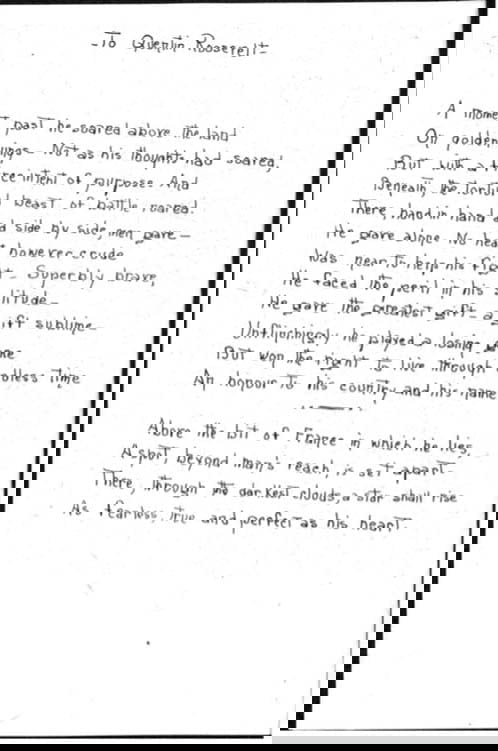 -To Quentin Roosevelt-
past he soared above the land
Not as his thought had soared,
intent of purpose. And
beast of battle roared
side by side, men gave—
however crude
Superbly brave,
litude—
ift sublime
me
less time
A mome
On golden
But with a
Beneath, the
There, hand in hand
He gave alone. No hea
Was near to help his
He faced the peril in his s
He gave the greatest gift - a
Unflinchingly he played a losing
But won the right to live through
An honour to his country and his name
Above the bit of France in which he lies,
A spot, beyond man's reach, is set apart
There, through the darkest clouds a star shall rise
As fearless, true and perfect as his heart